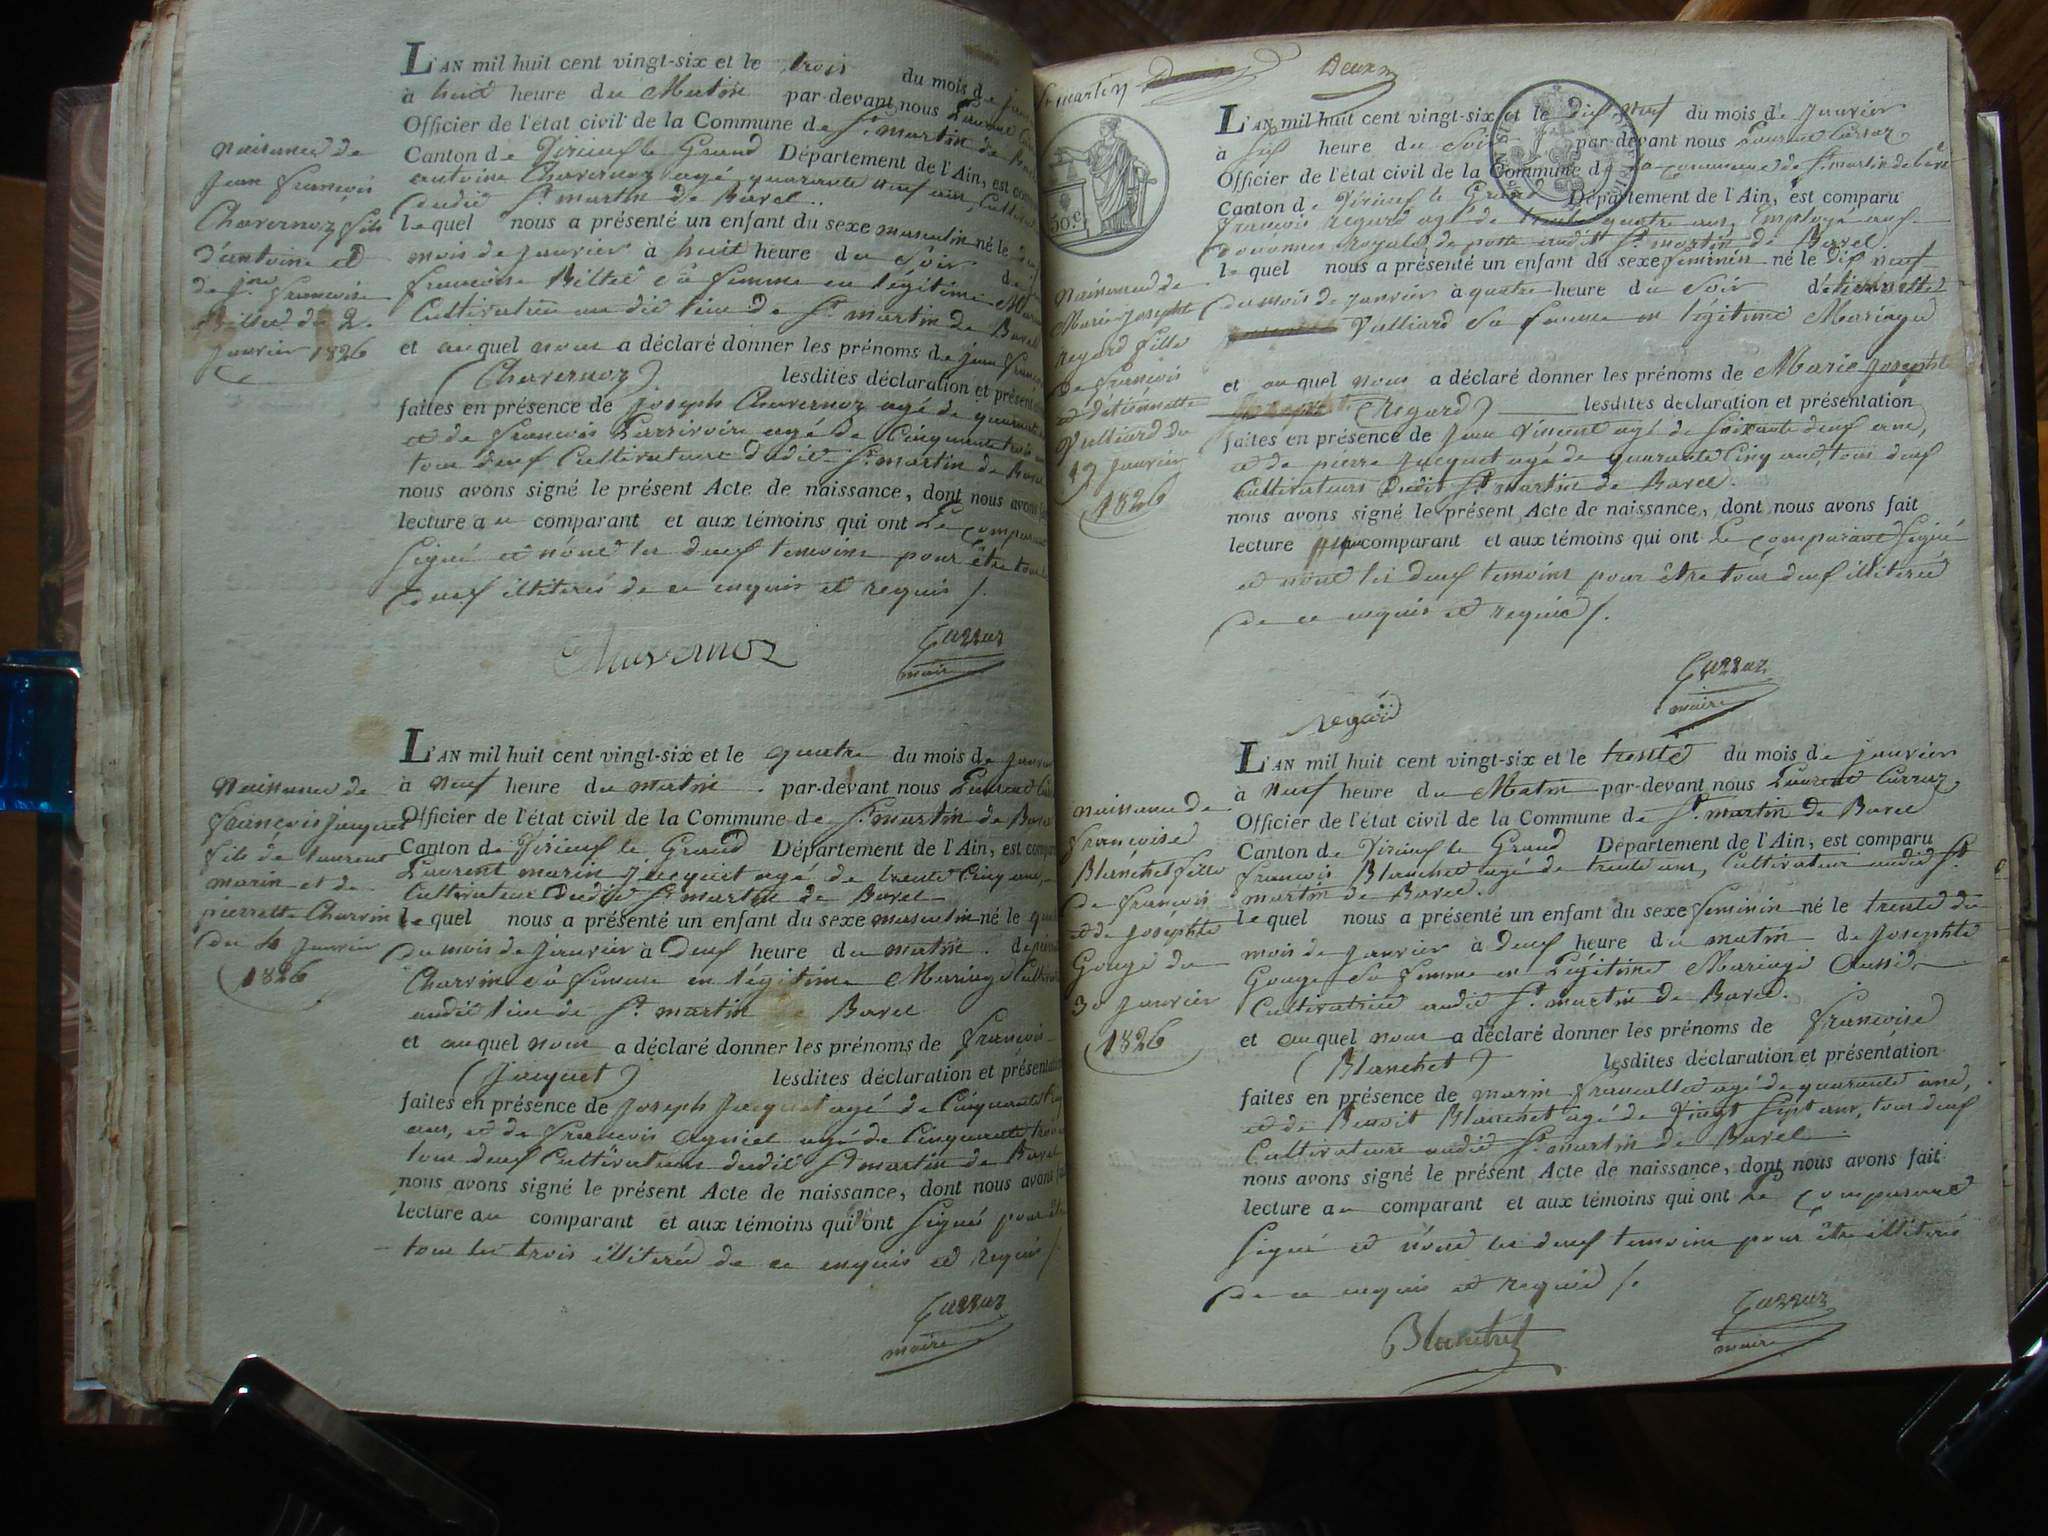 L'AN mil huit cent vingt-six et le trois du mois de
à huit heure du Matin par-devant nous Laurent
Officier de l'état civil de la Commune de St. martin de
Canton de Virieu le Grand Département de l'Ain, est
antoine Chavernoz agé quarante neuf ans,
dudit St martin de Bavel
lequel nous a présenté un enfant du sexe masculin né le
mois de janvier à huit heure du soir
françoise Billet sa femme en légitime
Cultivatrice au dit lieu de St. martin de Bavel
et auquel nous a déclaré donner les prénoms de jean
(Chavernoz) lesdites déclaration et
faites en présence de joseph Chavernoz agé de
et de françois agé de Cinquante trois
tous deux Cultivateurs dudit St martin de Bavel
nous avons signé le présent Acte de naissance, dont nous avons
lecture au comparant et aux témoins qui ont Le comparant
signé et nont les deux temoins pour être tous
deux illiterés de ce enquis et requis /.
Chavernoz
Carraz
maire
naissance de
jean françois
Chavernoz fils
d'antoine et
de françoise
Billet du 2.
janvier 1826
L'AN mil huit cent vingt-six et le quatre du mois de
à neuf heure du matin par-devant nous Laurent
Officier de l'état civil de la Commune de St. martin de
Canton de Virieu le Grand Département de l'Ain, est
Laurent marin jacquet agé de trente Cinq ans,
Cultivateur Dudit St martin de Bavel
lequel nous a présenté un enfant du sexe masculin né le
du mois de janvier à Deux heure du matin
Charvin sa femme en légitime Mariage
audit lieu de St. martin de Bavel
et auquel nous a déclaré donner les prénoms de françois
(Jacquet) lesdites déclaration et
faites en présence de joseph jacquet agé de Cinquante
ans, et de françois agniel agé de Cinquante trois
tous deux Cultivateurs dudit St martin de Bavel
nous avons signé le présent Acte de naissance, dont nous avons
lecture au comparant et aux témoins qui ont signés pour
tous les trois illiterés de ce enquis et requis /
Carraz
maire
naissance de
françois jacquet
fils de laurent
marin et de
pierrette Charvin
du 4 janvier
1826
St martin Deux
L'AN mil huit cent vingt-six et le dix neuf du mois de janvier
à six heure du soir par-devant nous Laurent Carraz
Officier de l'état civil de la Commune de la commune de St martin de bavel
Canton de Virieu le Grand Département de l'Ain, est comparu
françois regard agé de trente quatre ans, Employé aux
douannes Royales de poste audit St. martin de Bavel.
lequel nous a présenté un enfant du sexe féminin né le dix neuf
du mois de janvier à quatre heure du soir d'étiennette
Vulliard sa femme en légitime Mariage
et auquel nous a déclaré donner les prénoms de Marie josephte
(Regard) lesdites déclaration et présentation
faites en présence de jean Vincent agé de soixante deux ans,
et de pierre jacquet agé de quarante Cinq ans, tous deux
Cultivateurs Dudit St. martin de Bavel.
nous avons signé le présent Acte de naissance, dont nous avons fait
lecture au comparant et aux témoins qui ont Le comparant signé
et nont les deux temoins pour être tous deux illiteré
de ce enquis et requis /.
Carraz
maire
regard
50 c
naissance de
Marie josephte
regard fille
de françois
et d'étiennette
Vulliard du
19 janvier
1826
L'AN mil huit cent vingt-six et le trente du mois de janvier
à neuf heure du Matin par-devant nous Laurent Carraz
Officier de l'état civil de la Commune de St. martin de Bavel
Canton de Virieu le Grand Département de l'Ain, est comparu
françois Blanchet agé de trente ans, Cultivateur audit St.
martin de Bavel.
lequel nous a présenté un enfant du sexe féminin né le trente du
mois de janvier à Deux heure du matin de josephte
Gouge sa femme en Légitime Mariage Aussi
Cultivatrice audit St. martin de Bavel.
et auquel nous a déclaré donner les prénoms de françoise
(Blanchet) lesdites déclaration et présentation
faites en présence de marin agé de quarante ans,
et de Benoit Blanchet agé de Vingt sept ans, tous deux
Cultivateurs audit St. martin de Bavel
nous avons signé le présent Acte de naissance, dont nous avons fait
lecture au comparant et aux témoins qui ont Le comparant
signé et nont les deux temoins pour être illiterés
de ce enquis et requis /.
Blanchet
Carraz
maire
naissance de
françoise
Blanchet fille
de françois
et de josephte
Gouge du
30 janvier
1826